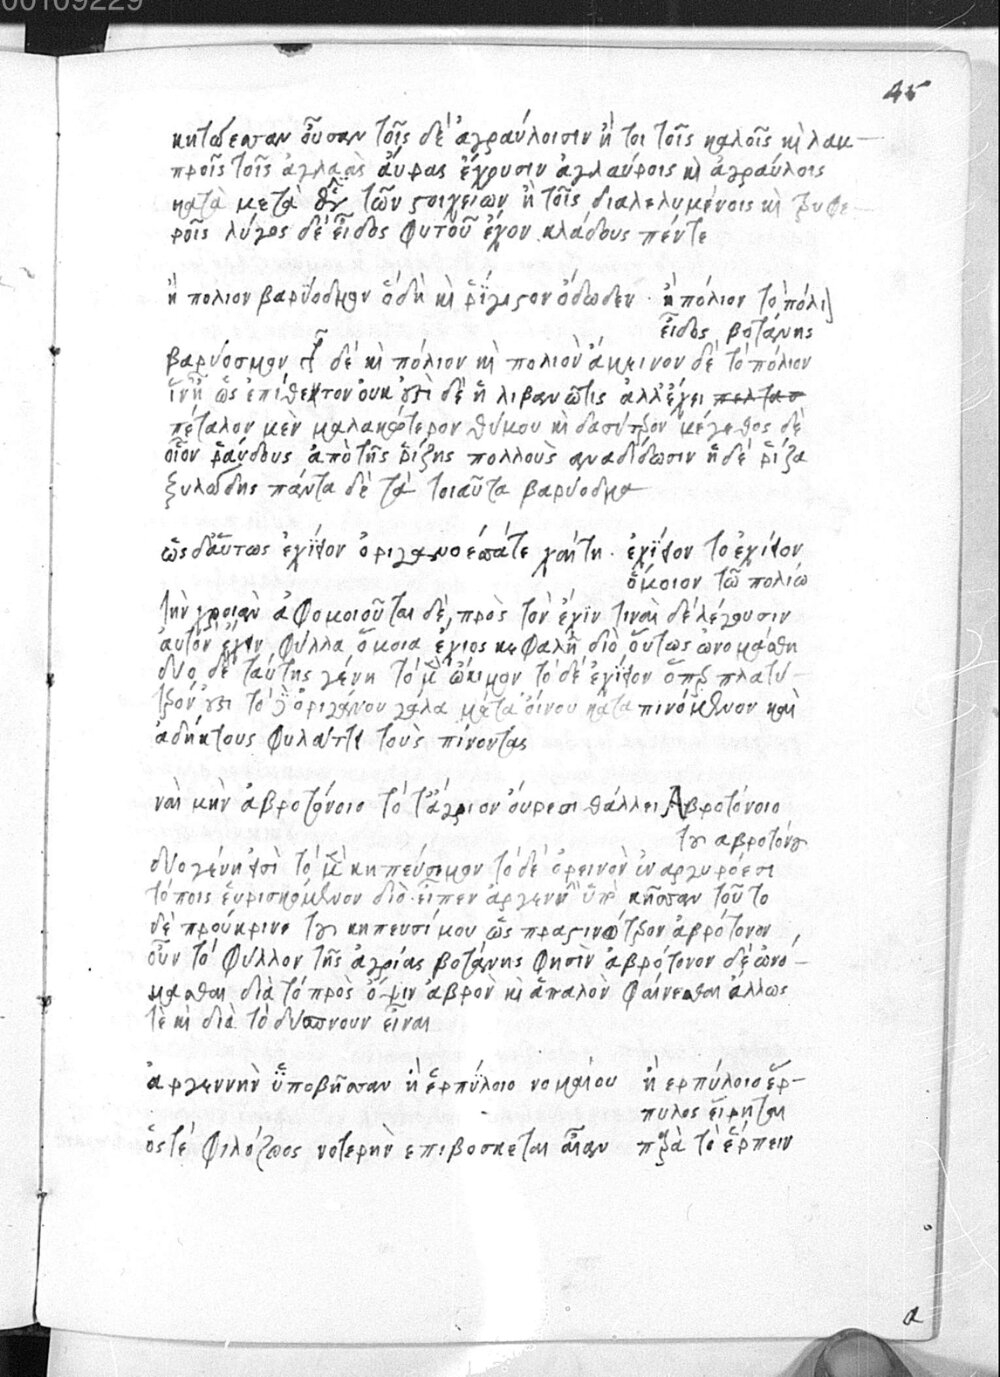 00109229
45
κητώεσσαν οὖσαν τοῖς δὲ ἀγραύλοισιν ἤτοι τοῖς καλοῖς κὶ λαμ-
προῖς τοῖς ἀγλαὰς αὔρας ἔχουσιν ἀγλαύροις κὶ ἀγραύλοις
κατὰ μετὰ τῶν στοιχείων ἢ τοῖς διαλελυμένοις κὶ τρυφε-
ροῖς λύγος δὲ εἶδος φυτοῦ ἔχον κλάδους πέντε
ἢ πολιον βαρύοδμον ὅδη κὶ ῥίγιστον ὄδωδεν · ἢ πόλιον τὸ πόλι
εἶδος βοτάνης
βαρύοσμον δὲ κὶ πόλιον κὶ πολιὸν ἄμεινον δὲ τὸ πόλιον
ὡς ἐπίθεκτον οὐκ δὲ ἡ λιβανῶτις ἀλλ' ἔχει
πέταλον μὲν μαλακώτερον θύμου κὶ δασύτερον μέγεθος δὲ
οἷον ῥάβδους ἀπὸ τῆς ῥίζης πολλοὺς ἀναδίδωσιν ἡ δὲ ῥίζα
ξυλώδης πάντα δὲ τὰ τοιαῦτα βαρύοδμα
ὣς δ' αὔτως ἐχῖϊον ὀριγανοέσσατε χαίτη · ἐχίϊον τὸ ἐχίϊον
ὅμοιον τῶ πολίω
τὴν χροιὰν ἀφομοιοῦται δὲ, πρὸς τὸν ἔχιν τινὰ δὲ λέγουσιν
αὐτὸν ἔχιν φύλλα ὅμοια ἔχιος κεφαλῆ διὸ οὕτως ὠνομάσθη
δύο δὲ ταύτης γένη τὸ μὲν ὤκιμον τὸ δὲ ἐχίϊον ὅπερ πλατύ-
τερον τὸ ὀριγάνου γάλα μετὰ οἴνου κατα πινόμενον καὶ
ἀδήκτους φυλάττει τοὺς πίνοντας
ναὶ μὴν ἀβροτόνοιο τό τ' ἄγριον οὔρεσι θάλλει Ἀβροτόνοιο
τοῦ αβροτόνου
δύο γένη ἐστὶ τὸ μὲν κηπεύσιμον τὸ δὲ ὀρεινὸν ἐν ἀργυρόεσι
τόποις εὑρισκόμενον διὸ εἶπεν ἀργεννὴ ὑπὸ κῆσσαν τοῦτο
δὲ προύκρινε τοῦ κηπευσίμου ὡς πρασινώτερον ἀβρότονον
οὖν τὸ φύλλον τῆς ἀγρίας βοτάνης φησὶν ἀβρότονον δὲ ὠνο-
μάσθαι διὰ τὸ πρὸς ὄψιν ἁβρὸν κὶ ἁπαλὸν φαίνεσθαι ἄλλως
τὲ κὶ διὰ τὸ δύσπνουν εἶναι
ἀργεννὴν ὑπὸ βῆσσαν ἢ ἑρπύλοιο νομαίου ἢ ερπύλοιο ἕρ-
πυλος εἴρηται
ὅς τὲ φιλόζωος νοτερὴν επιβοσκεται αἶαν παρὰ τὸ ἕρπειν